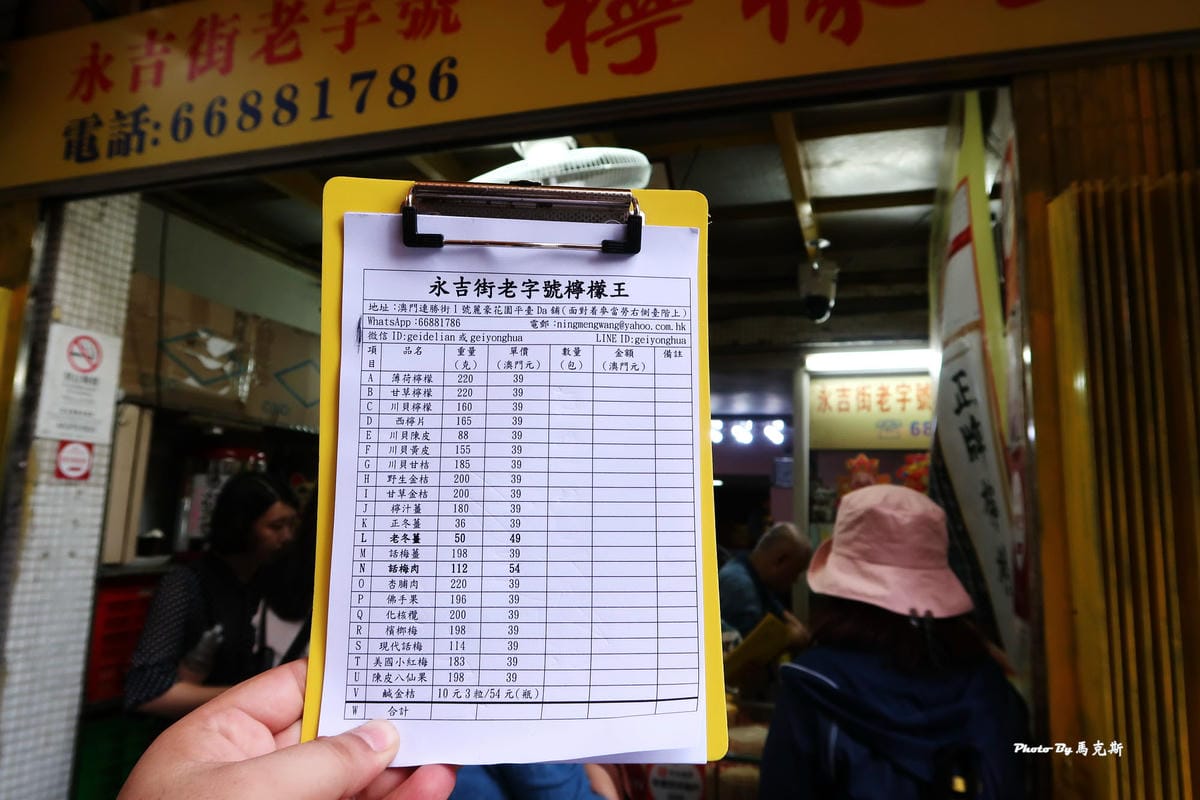 永吉街老字號 檸檬
電話:66881786
永吉街老字號檸檬王
地址:澳門連勝街1號麗豪花園平臺Da鋪(面對着麥當勞右側臺階上)
WhatsApp:66881786 電郵:ningmengwang@yahoo.com.hk
微信ID:geidelian或geiyonghua LINE ID:geiyonghua
項目 品名 重量(克) 單價(澳門元) 數量(包) 金額(澳門元) 備註
A 薄荷檸檬 220 39
B 甘草檸檬 220 39
C 川貝檸檬 160 39
D 西檸片 165 39
E 川貝陳皮 88 39
F 川貝黃皮 155 39
G 川貝甘桔 185 39
H 野生金桔 200 39
I 甘草金桔 200 39
J 檸汁薑 180 39
K 正冬薑 36 39
L 老冬薑 50 49
M 話梅薑 198 39
N 話梅肉 112 54
O 杏脯肉 220 39
P 佛手果 196 39
Q 化核欖 200 39
R 檳榔梅 198 39
S 現代話梅 114 39
T 美國小紅梅 183 39
U 陳皮八仙果 198 39
V 鹹金桔 10元3粒/54元(瓶)
W 合計
永吉街老字號
68
正牌
Photo By 馬克斯